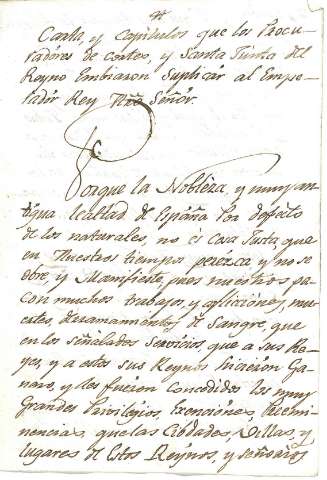 Carta, y Capitulos que los Procu-
radores de Cortes, y Santa Junta del
Reyno Embiaron Suplicar al Empe-
rador Rey Nrõ Señor.
Porque la Nobleza, y muy an
tigua lealtad de España por defecto
de los naturales, no es Cosa Justa, que
en Nuestros tiempos perezca, y no se
obre, y Manifieste, pues nuestros pa-
con muchos trabajos, y afliciones, mu-
ertes, derramamientos de Sangre, que
en los señalados Servicios que a sus Re-
yes, y a estos sus Reynos hicieron Ga-
naro, y les fueron concedidos los muy
Grandes Privilegios, Exenciones, Preemi-
nencias, que las Ciudades, Villas, y
lugares de Estos Reynos, y señorios